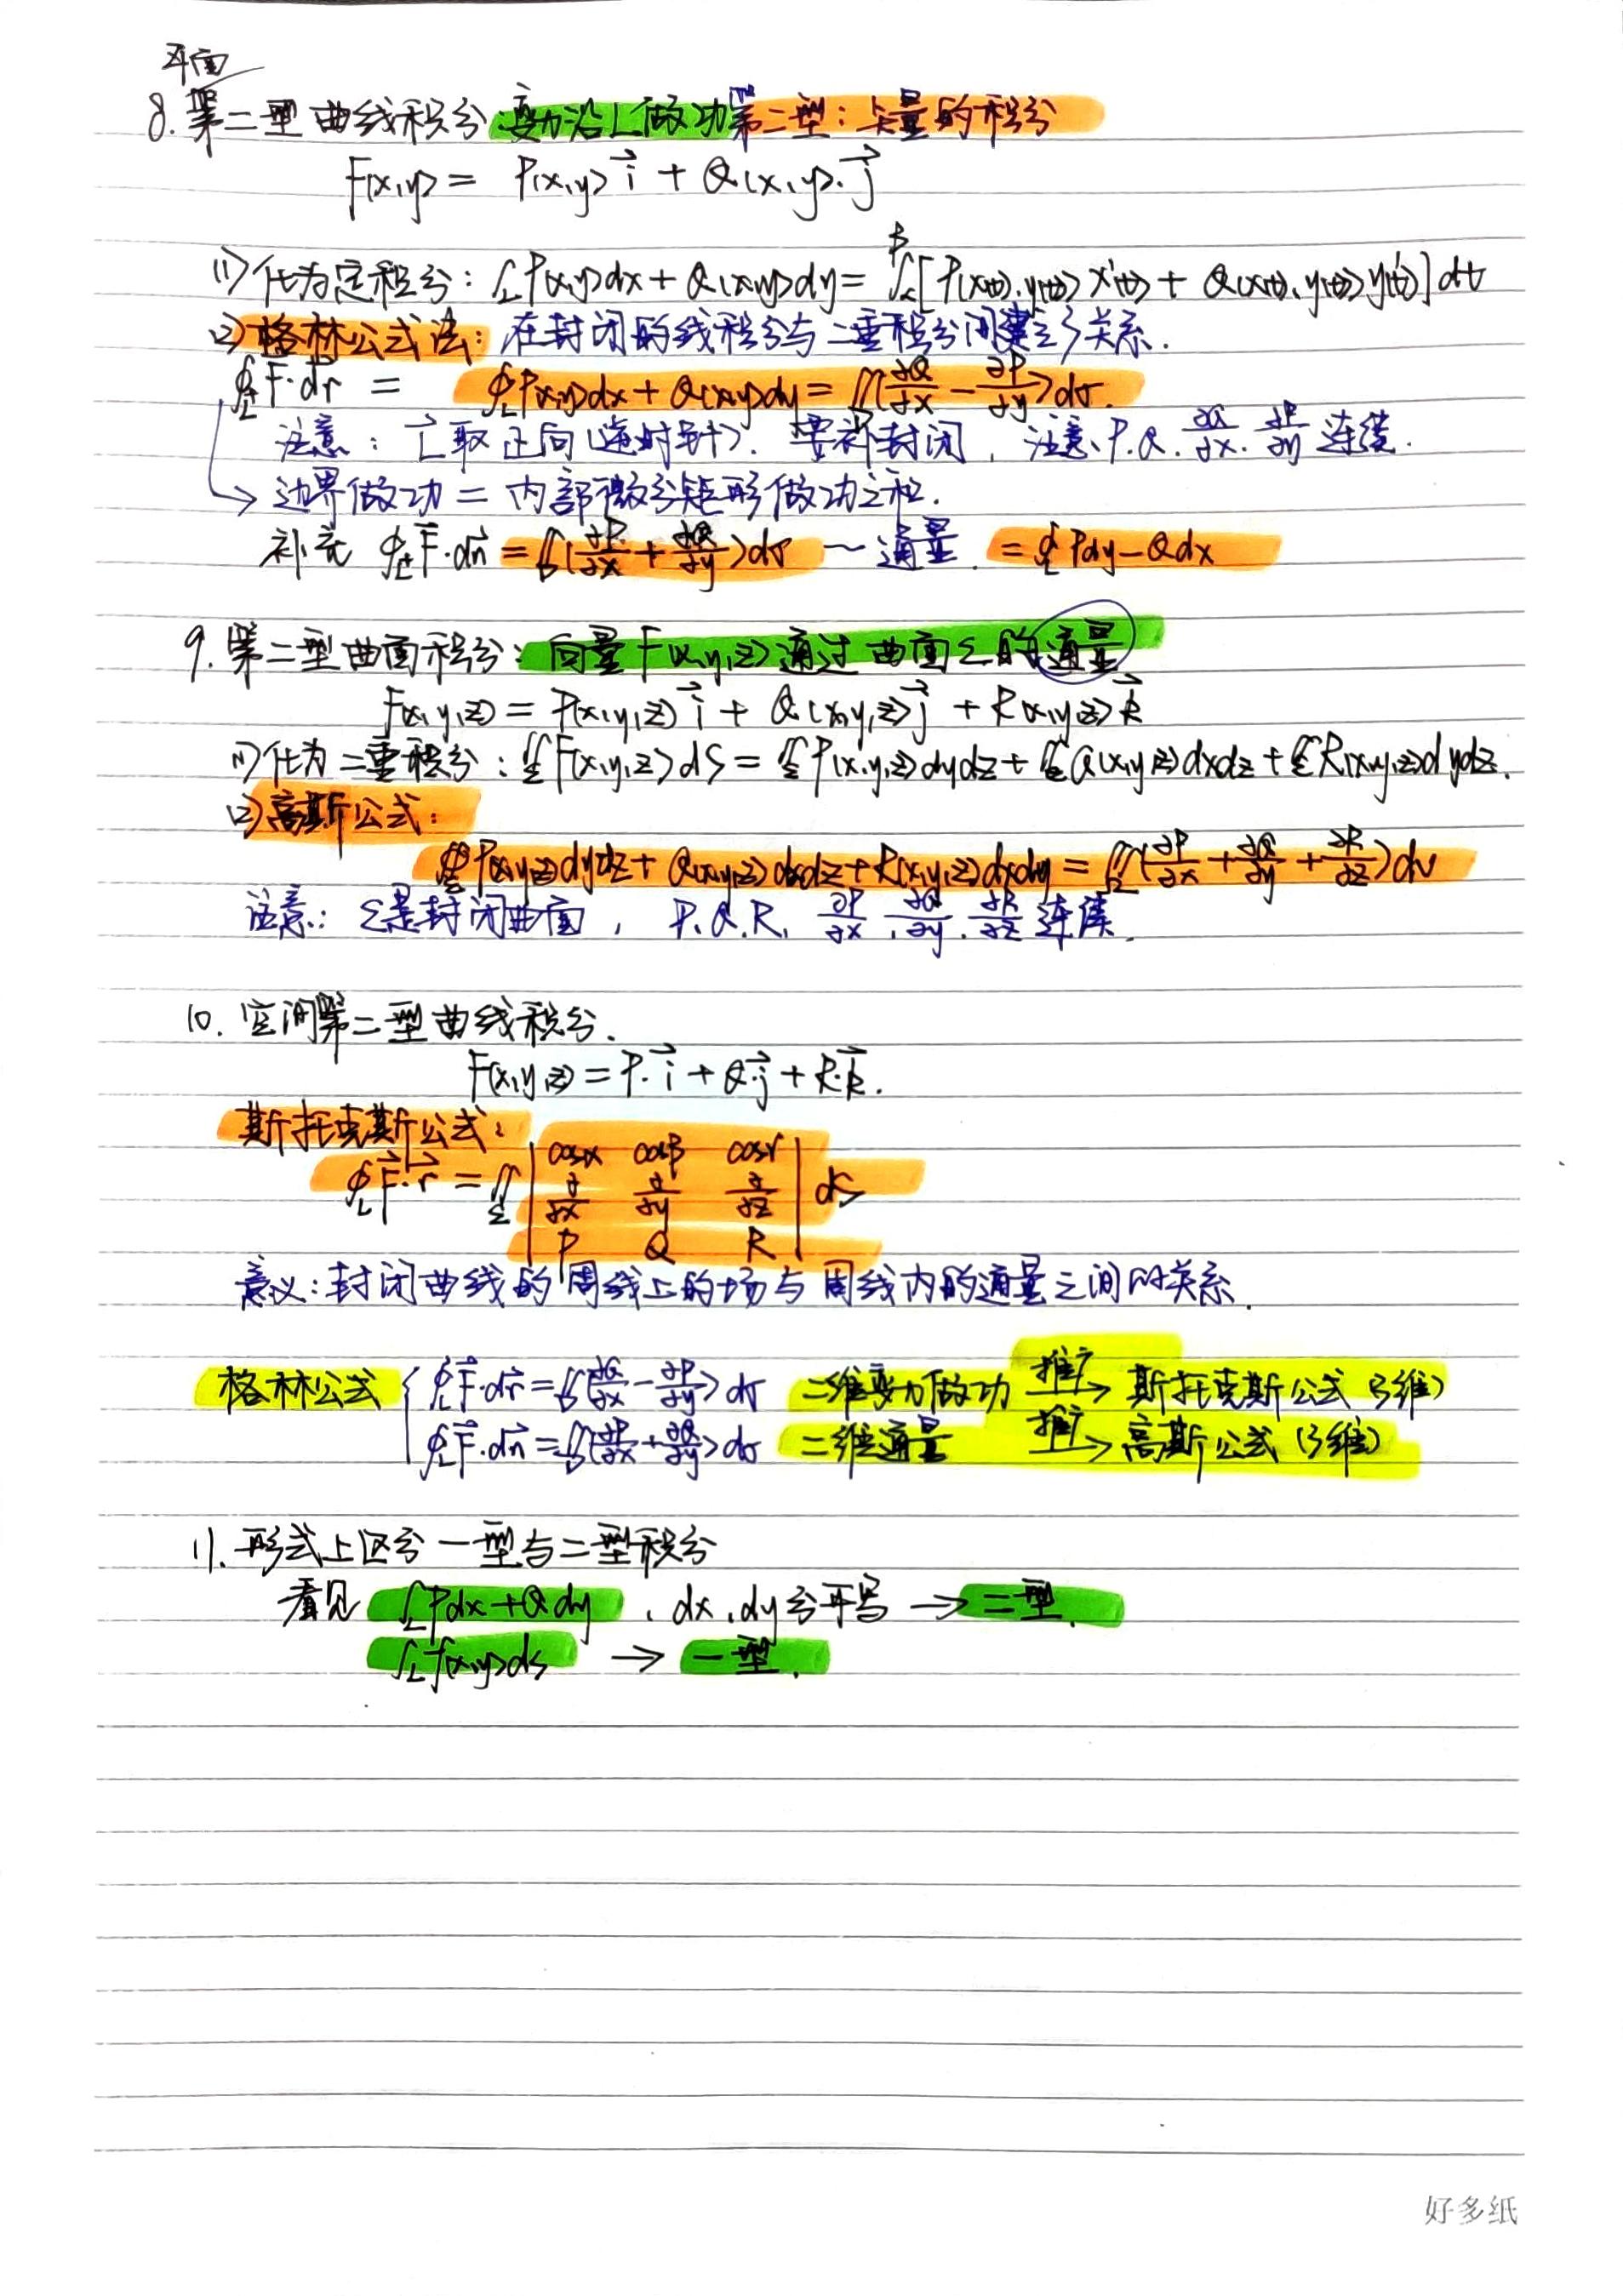 平面
8. 第二型曲线积分 变力沿L做功 第二型：矢量的积分
F(x,y) = P(x,y)i⃗ + Q(x,y)·j⃗
(1) 化为定积分：∫_L P(x,y)dx + Q(x,y)dy = ∫_α^β [P(x(t),y(t))x'(t) + Q(x(t),y(t))y'(t)]dt
(2) 格林公式法：在封闭的线积分与二重积分间建立了关系.
∮_L F⃗·dr⃗ = ∮_L P(x,y)dx + Q(x,y)dy = ∬(∂Q/∂x - ∂P/∂y)dσ.
注意：L取正向(逆时针). 要补封闭, 注意、P.Q.∂Q/∂x.∂P/∂y连续.
→ 边界做功 = 内部微分矩形做功之和.
补充 ∮_L F⃗·dn⃗ = ∬_D(∂P/∂x + ∂Q/∂y)dσ ~ 通量. = ∮_L Pdy - Qdx
9. 第二型曲面积分：向量F(x,y,z)通过曲面Σ的通量
F(x,y,z) = P(x,y,z)i⃗ + Q(x,y,z)j⃗ + R(x,y,z)k⃗
(1) 化为二重积分：∬_Σ F(x,y,z)dS = ∬_Σ P(x,y,z)dydz + ∬_Σ Q(x,y,z)dxdz + ∬_Σ R(x,y,z)dydz.
(2) 高斯公式：
∯_Σ P(x,y,z)dydz + Q(x,y,z)dxdz + R(x,y,z)dxdy = ∭_Ω(∂P/∂x + ∂Q/∂y + ∂R/∂z)dv
注意：Σ是封闭曲面, P.Q.R. ∂P/∂x.∂Q/∂y.∂R/∂z连续.
10. 空间第二型曲线积分.
F(x,y,z) = P·i⃗ + Q·j⃗ + R·k⃗.
斯托克斯公式：
∮_L F⃗·r⃗ = ∬_Σ | cosα cosβ cosγ | dS
∂/∂x ∂/∂y ∂/∂z
P Q R
意义：封闭曲线的周线上的场与周线内的通量之间的关系.
格林公式 { ∮_L F⃗·dr⃗ = ∬_D(∂Q/∂x - ∂P/∂y)dσ 二维变力做功 推广→ 斯托克斯公式(3维)
∮_L F⃗·dn⃗ = ∬_D(∂P/∂x + ∂Q/∂y)dσ 二维通量 推广→ 高斯公式(3维)
11. 形式上区分一型与二型积分
看见 ∫_L Pdx + Qdy , dx,dy分开写 → 二型.
∫_L f(x,y)ds → 一型.
好多纸